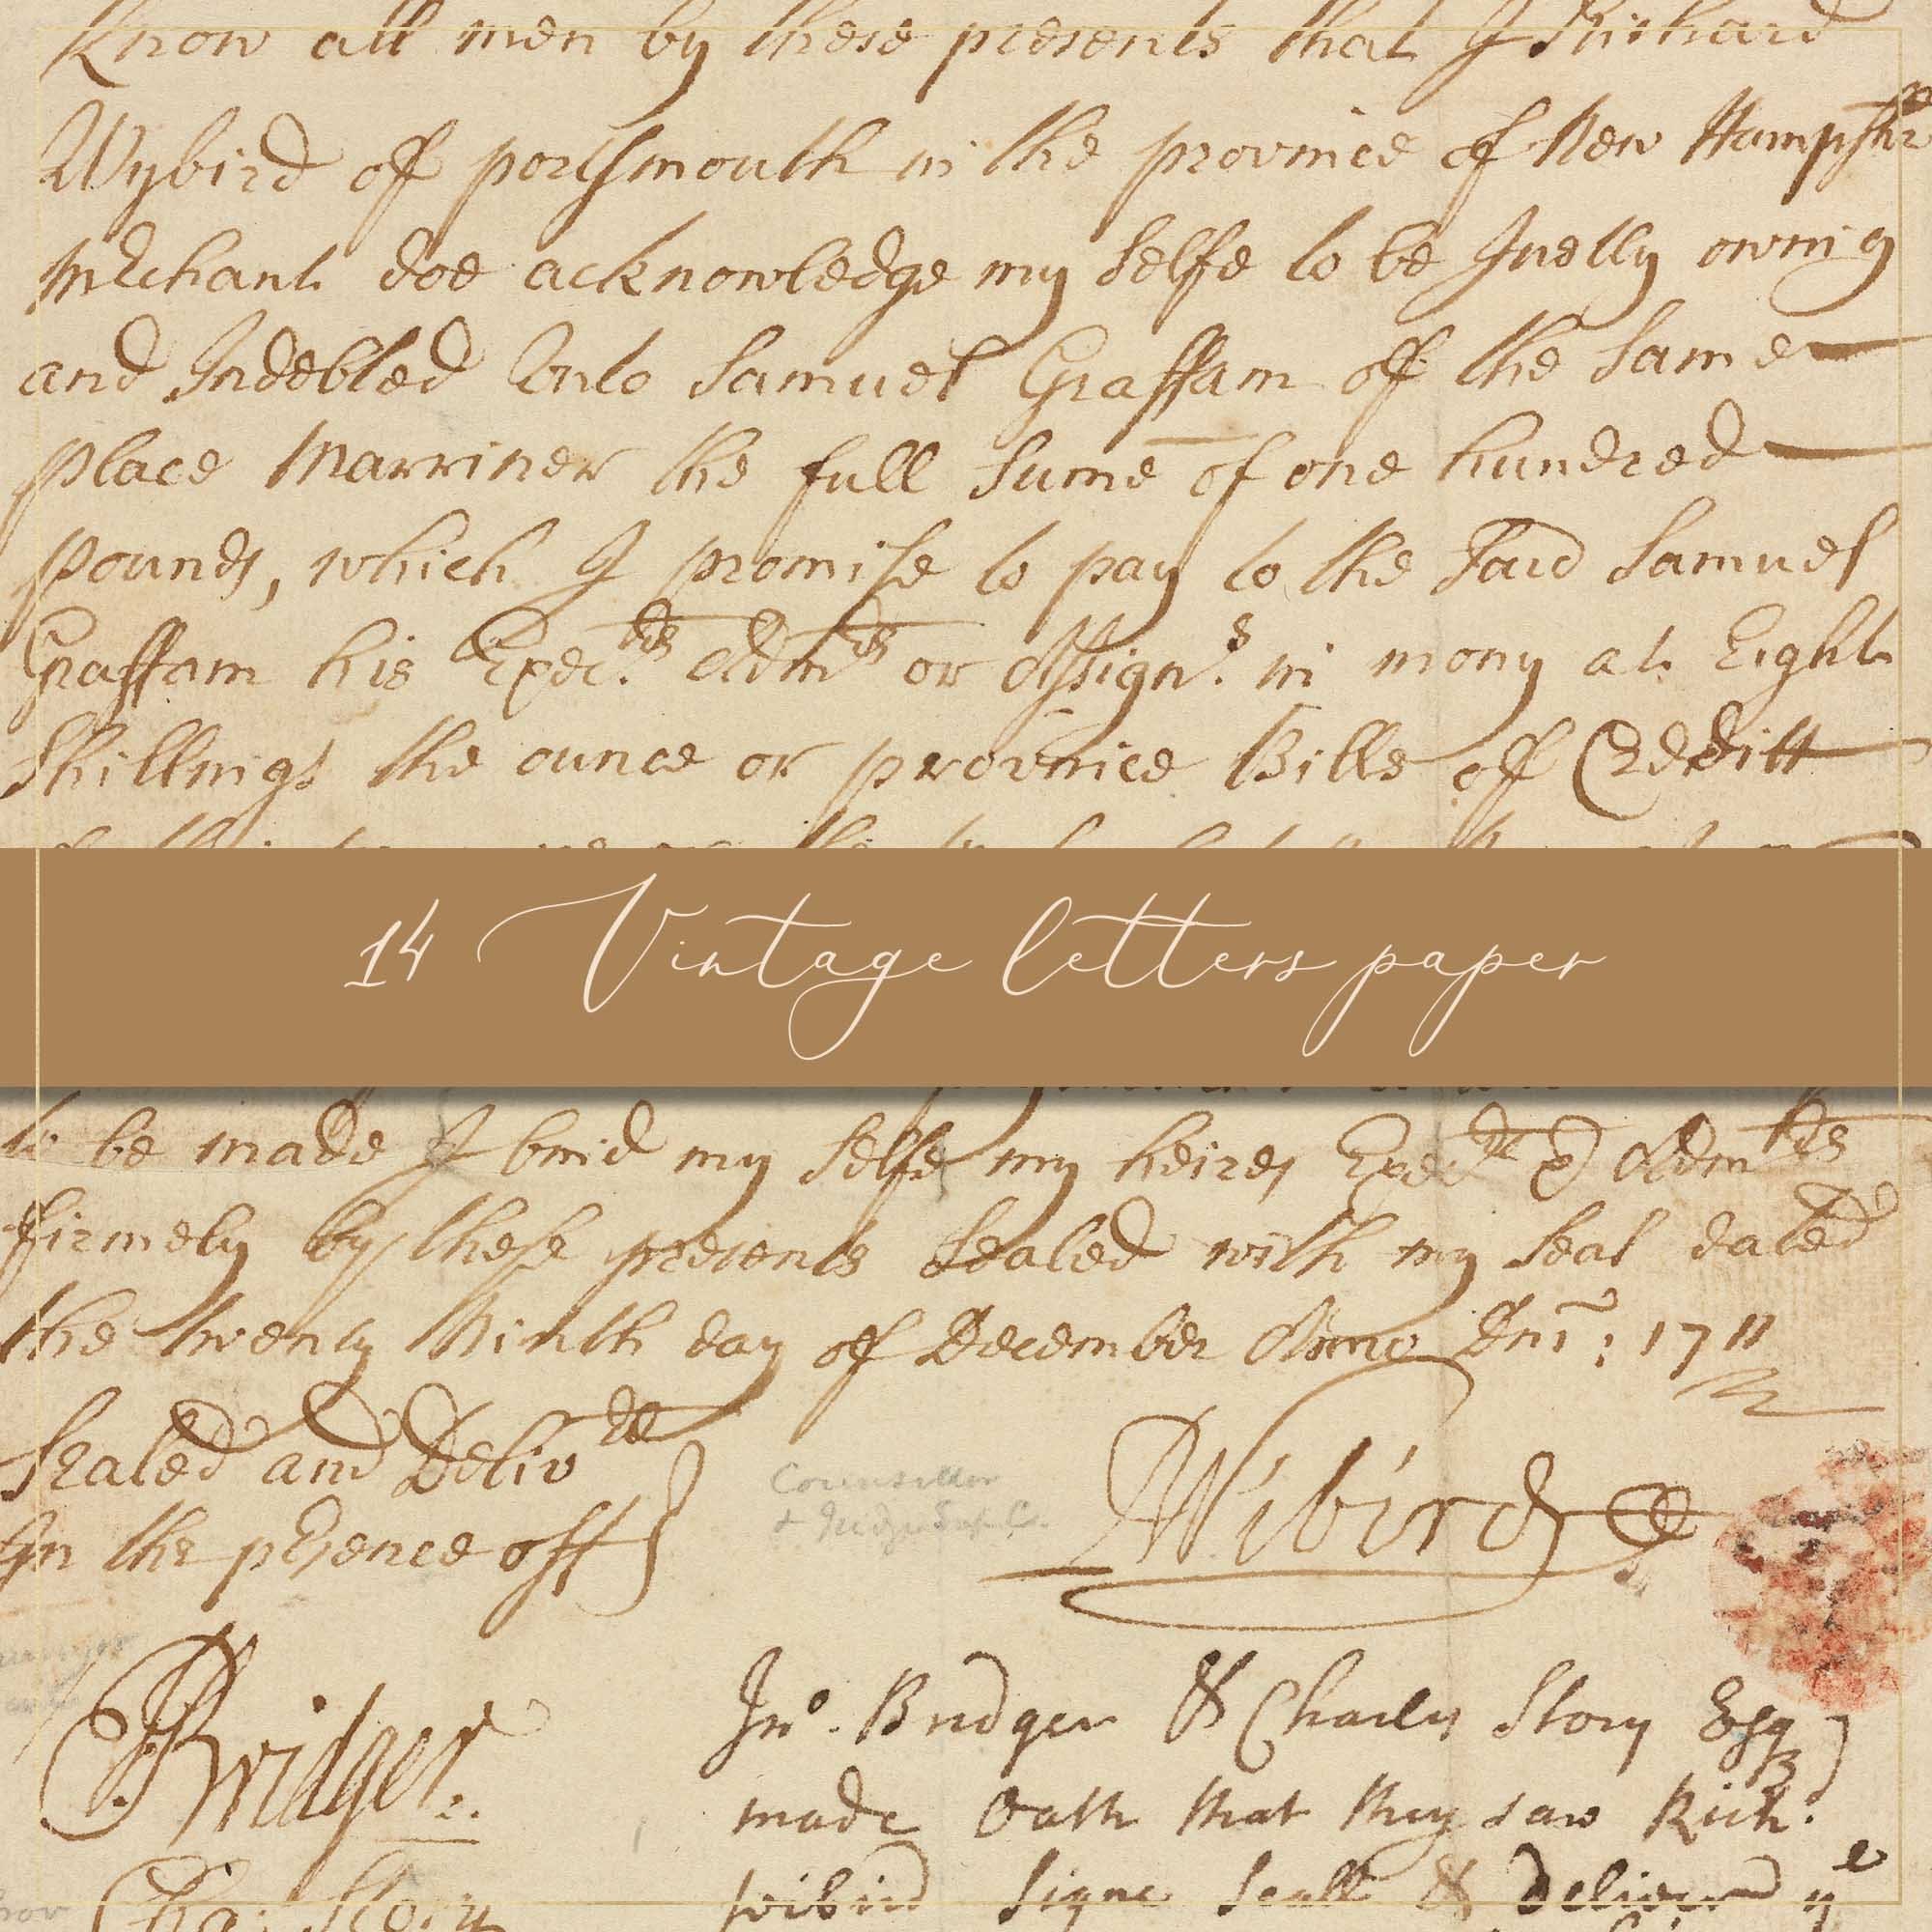 Know all men by these presents that I Richard
Wybird off portsmouth in the province of New Hampshr
merchant doe acknowledge my Selfe to be Justly owing
and Indebted Vnto Samuel Graffam off the Same
place Marriner the full Sume of one hundred
pounds, which I promise to pay to the Said Samuel
Graffam his Execrs. Admrs or Assigns. in mony at Eight
Shillings the ounce or province Bills off Creditt
14 Vintage letters paper
to be made I bind my Selfe my heires Execrs & Admrs
firmely by these presents Sealed with my Seal dated
the twenty Ninth day of December Anno Dni: 1711
Sealed and Delivred
In the presence off
Counsellor
RWibird
Jno. Bridger & Charles Story Esqr
JBridger
made Oath that they saw Rich:
wibird Signe Seall & deliver ye
Cha: Story